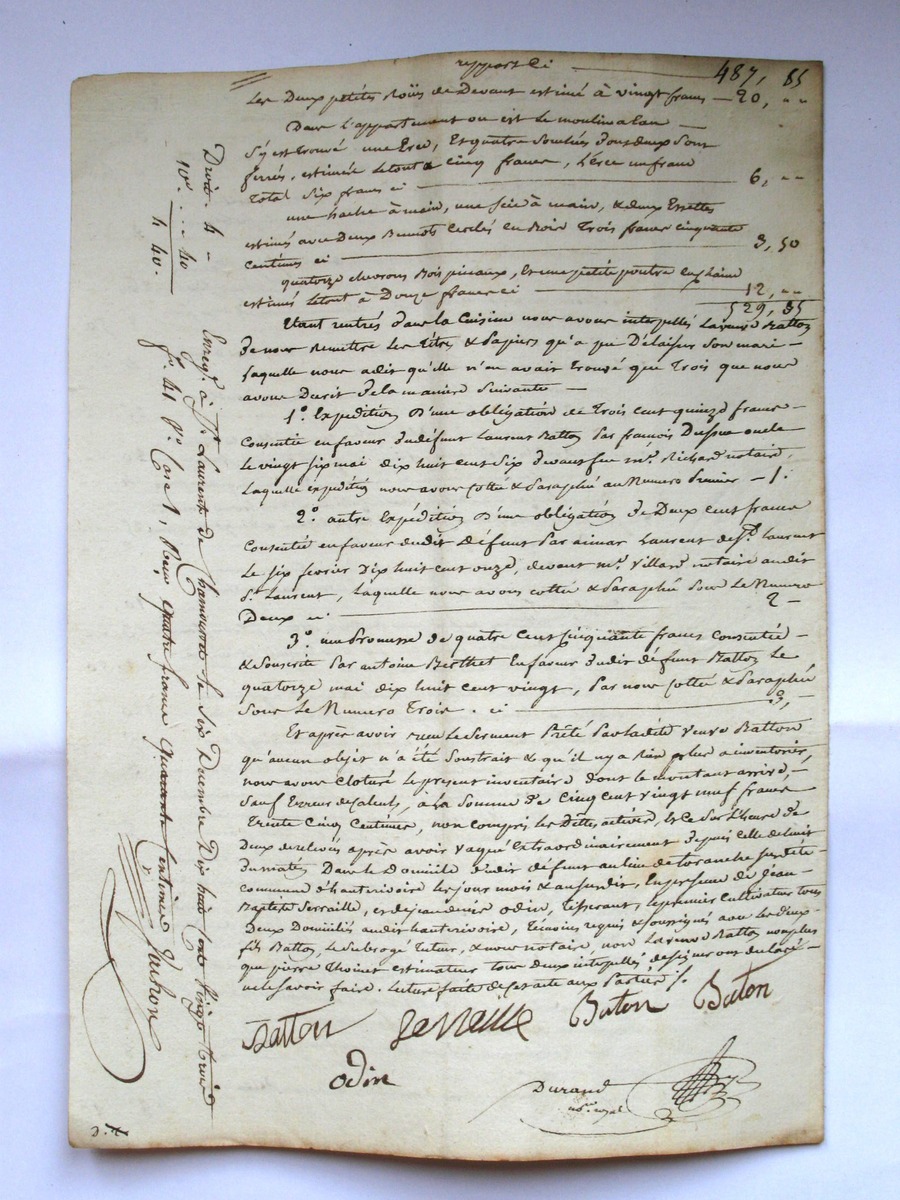 report ci 487, 85
Les Deux petites Roües de Devant estimé à vingt francs 20, " "
Dans l'appartement ou est le moulin a
S'y est trouvé une et quatre dont deux sont
ferrés, estimés le tout a cinq francs, un franc
Total Six francs ci 6, " "
une hache à main, une scie à main, & deux
estimés avec Deux cerclés en Bois Trois francs cinquante
Centimes ci 3, 50
quatorze chevrons Bois pineaux, Et une petite poutre en
estimés le tout à Douze francs ci 12, " "
529, 35
Etant rentrés dans la Cuisine nous avons interpellés La veuve Batton
De nous Remettre les Titres & Papiers qu'a pu Délaisser Son mari
Laquelle nous a dit qu'elle n'en avait trouvé que Trois que nous
avons Décrit de la manière Suivante
1o. Expédition D'une obligation de Trois cent quinze francs
Consentie en faveur dudit défunt Laurent Batton Par françois
Le vingt Six mai dix huit cent Six devant feu me. Richard notaire,
Laquelle expédition nous avons cottée & Paraphé au Numero Premier 1.
2o. autre Expédition D'une obligation de Deux cent francs
Consentie en faveur dudit Défunt Par aimar Laurent de St. Laurent
Le Six fevrier Dix huit cent onze, devant me. Villard notaire audit
St. Laurent, Laquelle nous avons cottée & Paraphé Sous Le Numero
Deux ci 2
3o. une Promesse de quatre Cent Cinquante francs Consentie
& Souscrite Par antoine Berthet En faveur dudit défunt Batton Le
quatorze mai dix huit cent vingt, Par nous Cottée & Paraphé
Sous Le Numero Trois. ci 3,
Et après avoir reçu Le Serment Prêté Par Ladite Veuve Batton
qu'aucun objet n'a été Soustrait & qu'il n'y a Rien plus a inventorier,
nous avons cloturé Le present inventaire dont le montant arrive,
Sauf Erreur de Calculs, à la Somme de Cinq Cent vingt neuf francs
Trente Cinq Centimes, non compris les Dettes actives, Et ce Sur L'heure de
Deux de relevée après avoir vaqué Extraordinairement depuis celle de huit
du matin Dans le Domicile dudit défunt au lieu de
Commune d'hauterivoire les jour mois & an susdit, En presence de Jean
Baptiste Serraille, et odin, Tisserant, Le premier Cultivateur tous
Deux Domiciliés audit hauterivoire, Témoins requis & Soussignés avec Les deux
fils Batton, Le Subrogé Tuteur, & nous notaire, non La veuve Batton non plus
que pierre Thoinet estimateur tous deux interpellés de signer ont declaré
ne le Savoir faire. Lecture faite du Partié /.
Batton Serraille Baton Baton
odin
Durand
Droit 4 "
10e. . . 40
4. 40.
Enregt. à St. Laurent de Chamousset le Six Décembre Dix huit cents vingt trois
fo. 41 Vo. Case 1, Reçu quatre francs quarante centimes